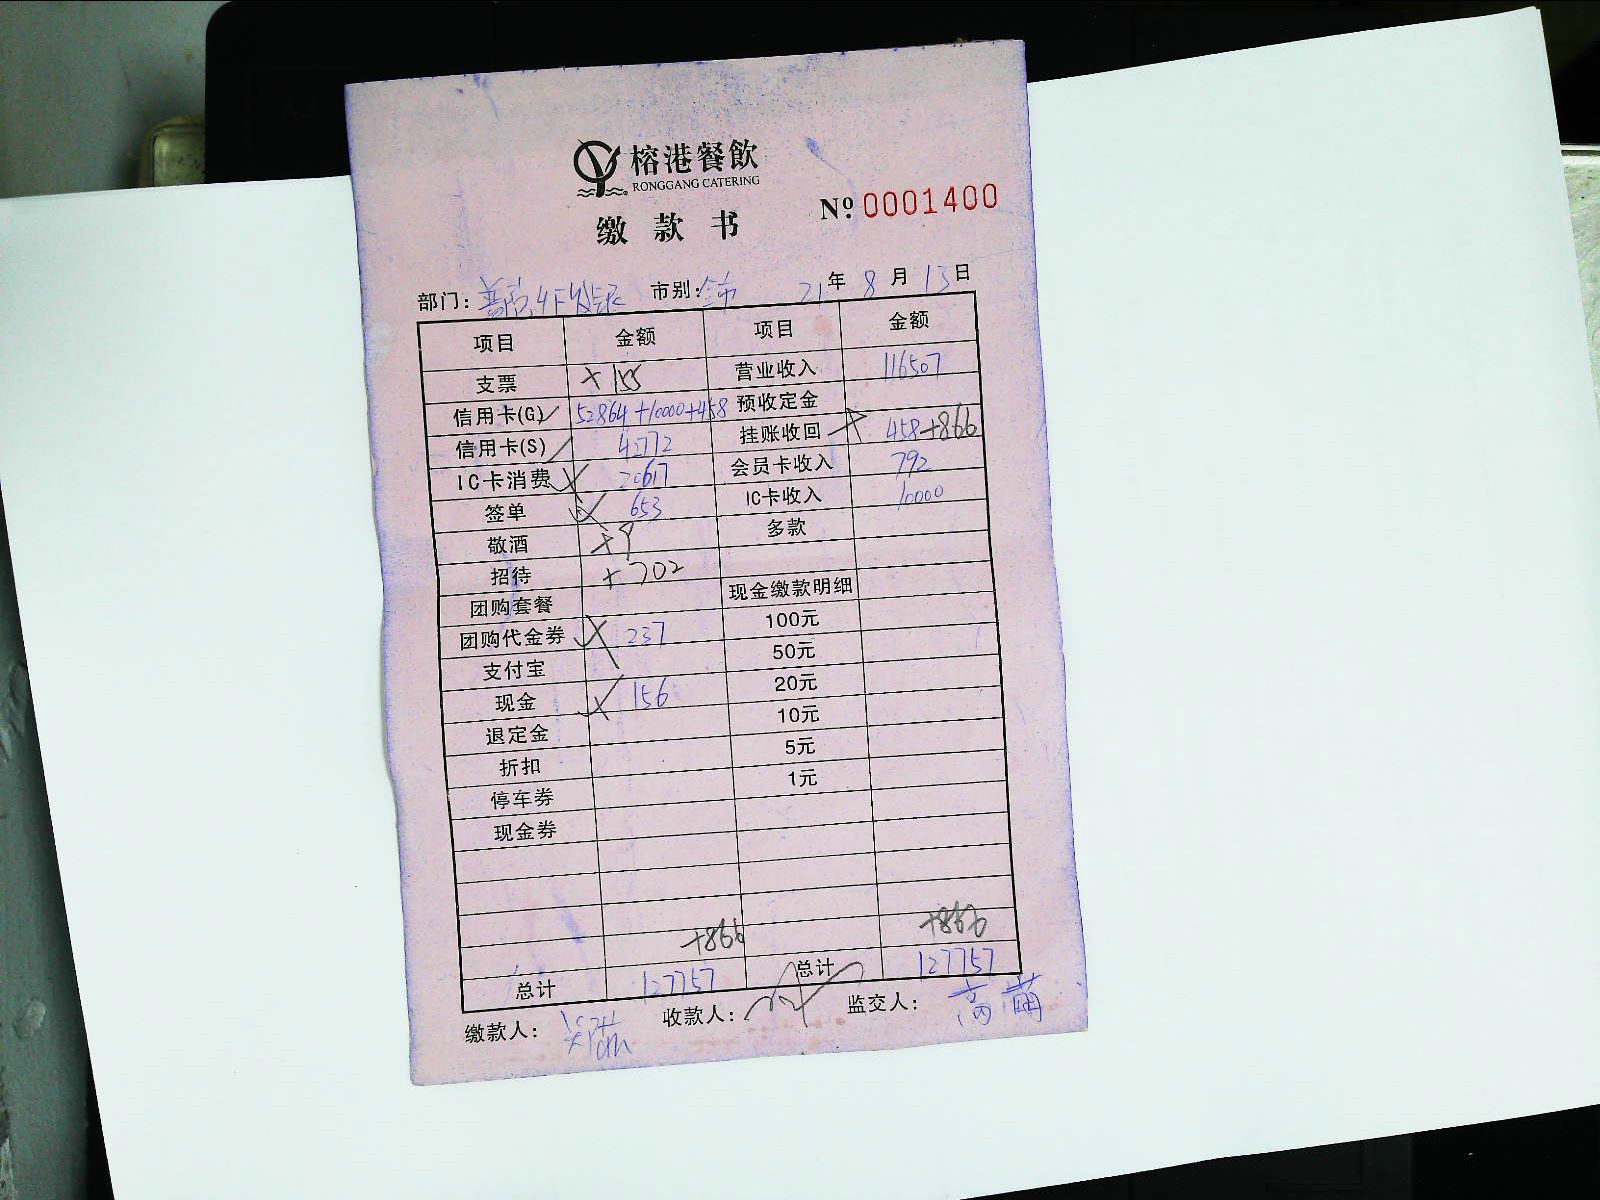 榕港餐飲
RONGGANG CATERING
缴款书
Nº 0001400
部门: 市别: 全市 21年8月13日
项目 金额 项目 金额
支票 +155 营业收入 116507
信用卡(G) 52864+10000+458 预收定金
信用卡(S) 42772 挂账收回 458+866
IC卡消费 20617 会员卡收入 792
签单 653 IC卡收入 10000
敬酒 +9 多款
招待 +702
团购套餐 现金缴款明细
团购代金券 237 100元
支付宝 50元
现金 156 20元
退定金 10元
折扣 5元
停车券 1元
现金券
+866 +866
总计 127757 总计 127757
缴款人: 收款人: 监交人: 高萌